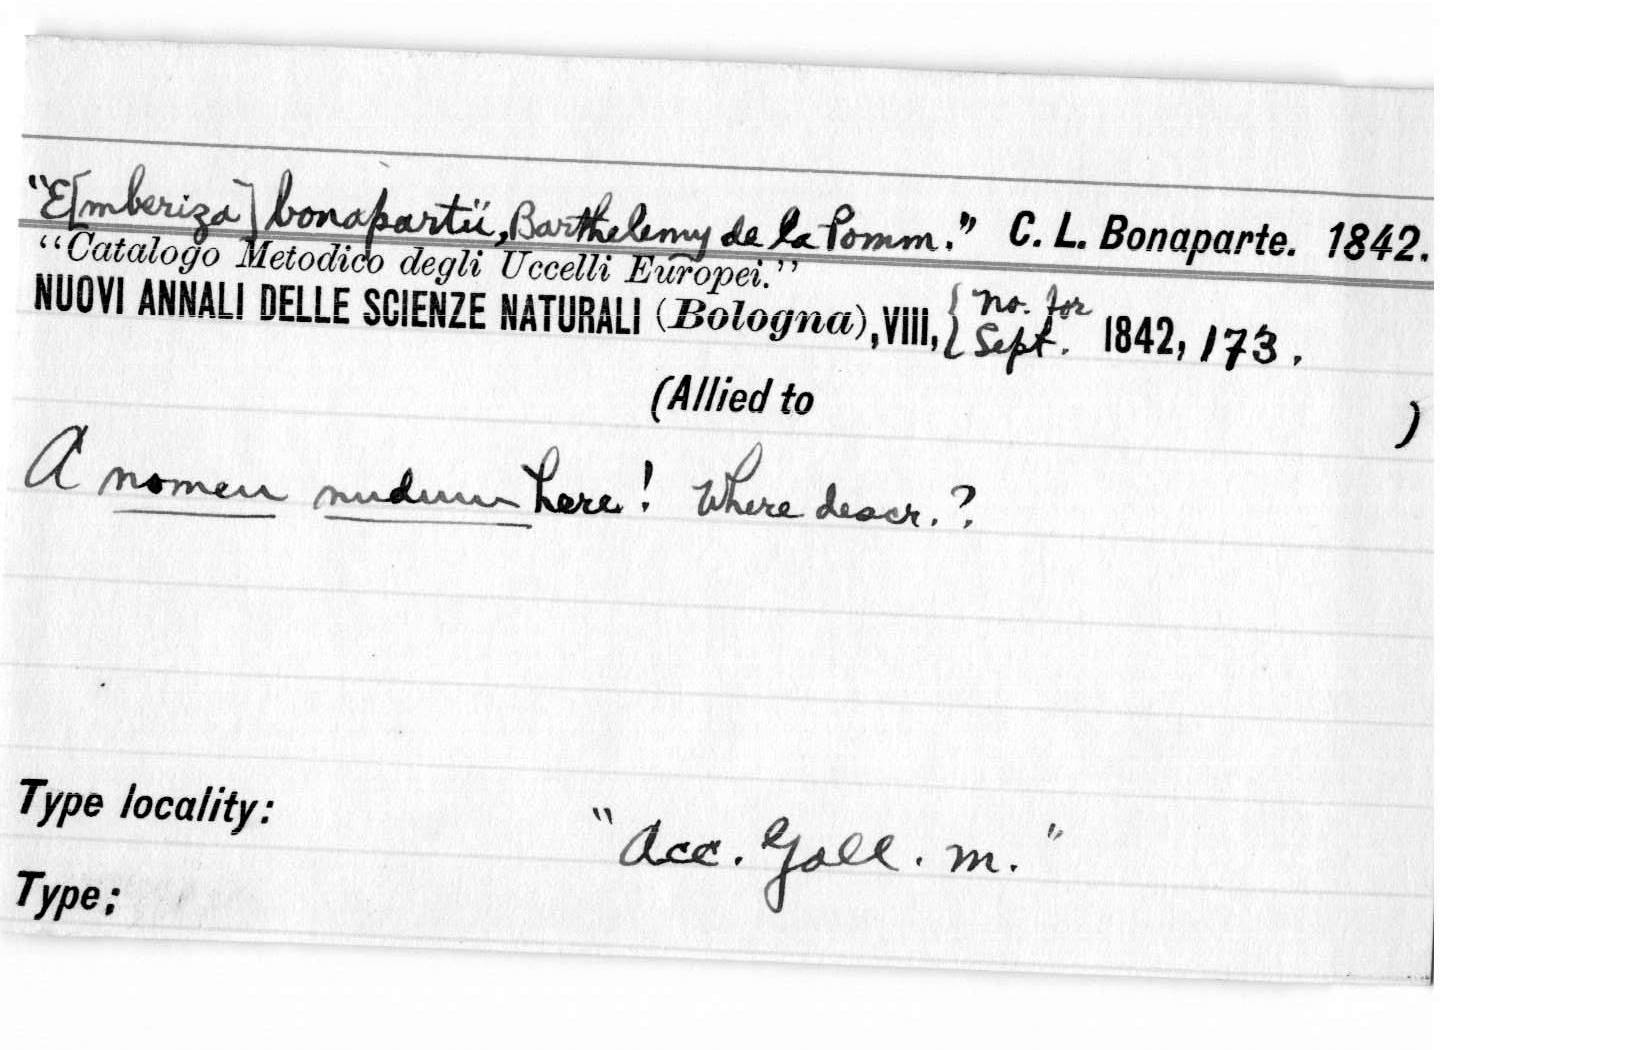 "E[mberiza] bonapartii, Barthelemy de la Pomm." C. L. Bonaparte. 1842.
"Catalogo Metodico degli Uccelli Europei."
NUOVI ANNALI DELLE SCIENZE NATURALI (Bologna), VIII, { no. for Sept. 1842, 173.
(Allied to )
A nomen nudum here! Where descr.?
Type locality: "Acc. Gall. m."
Type: